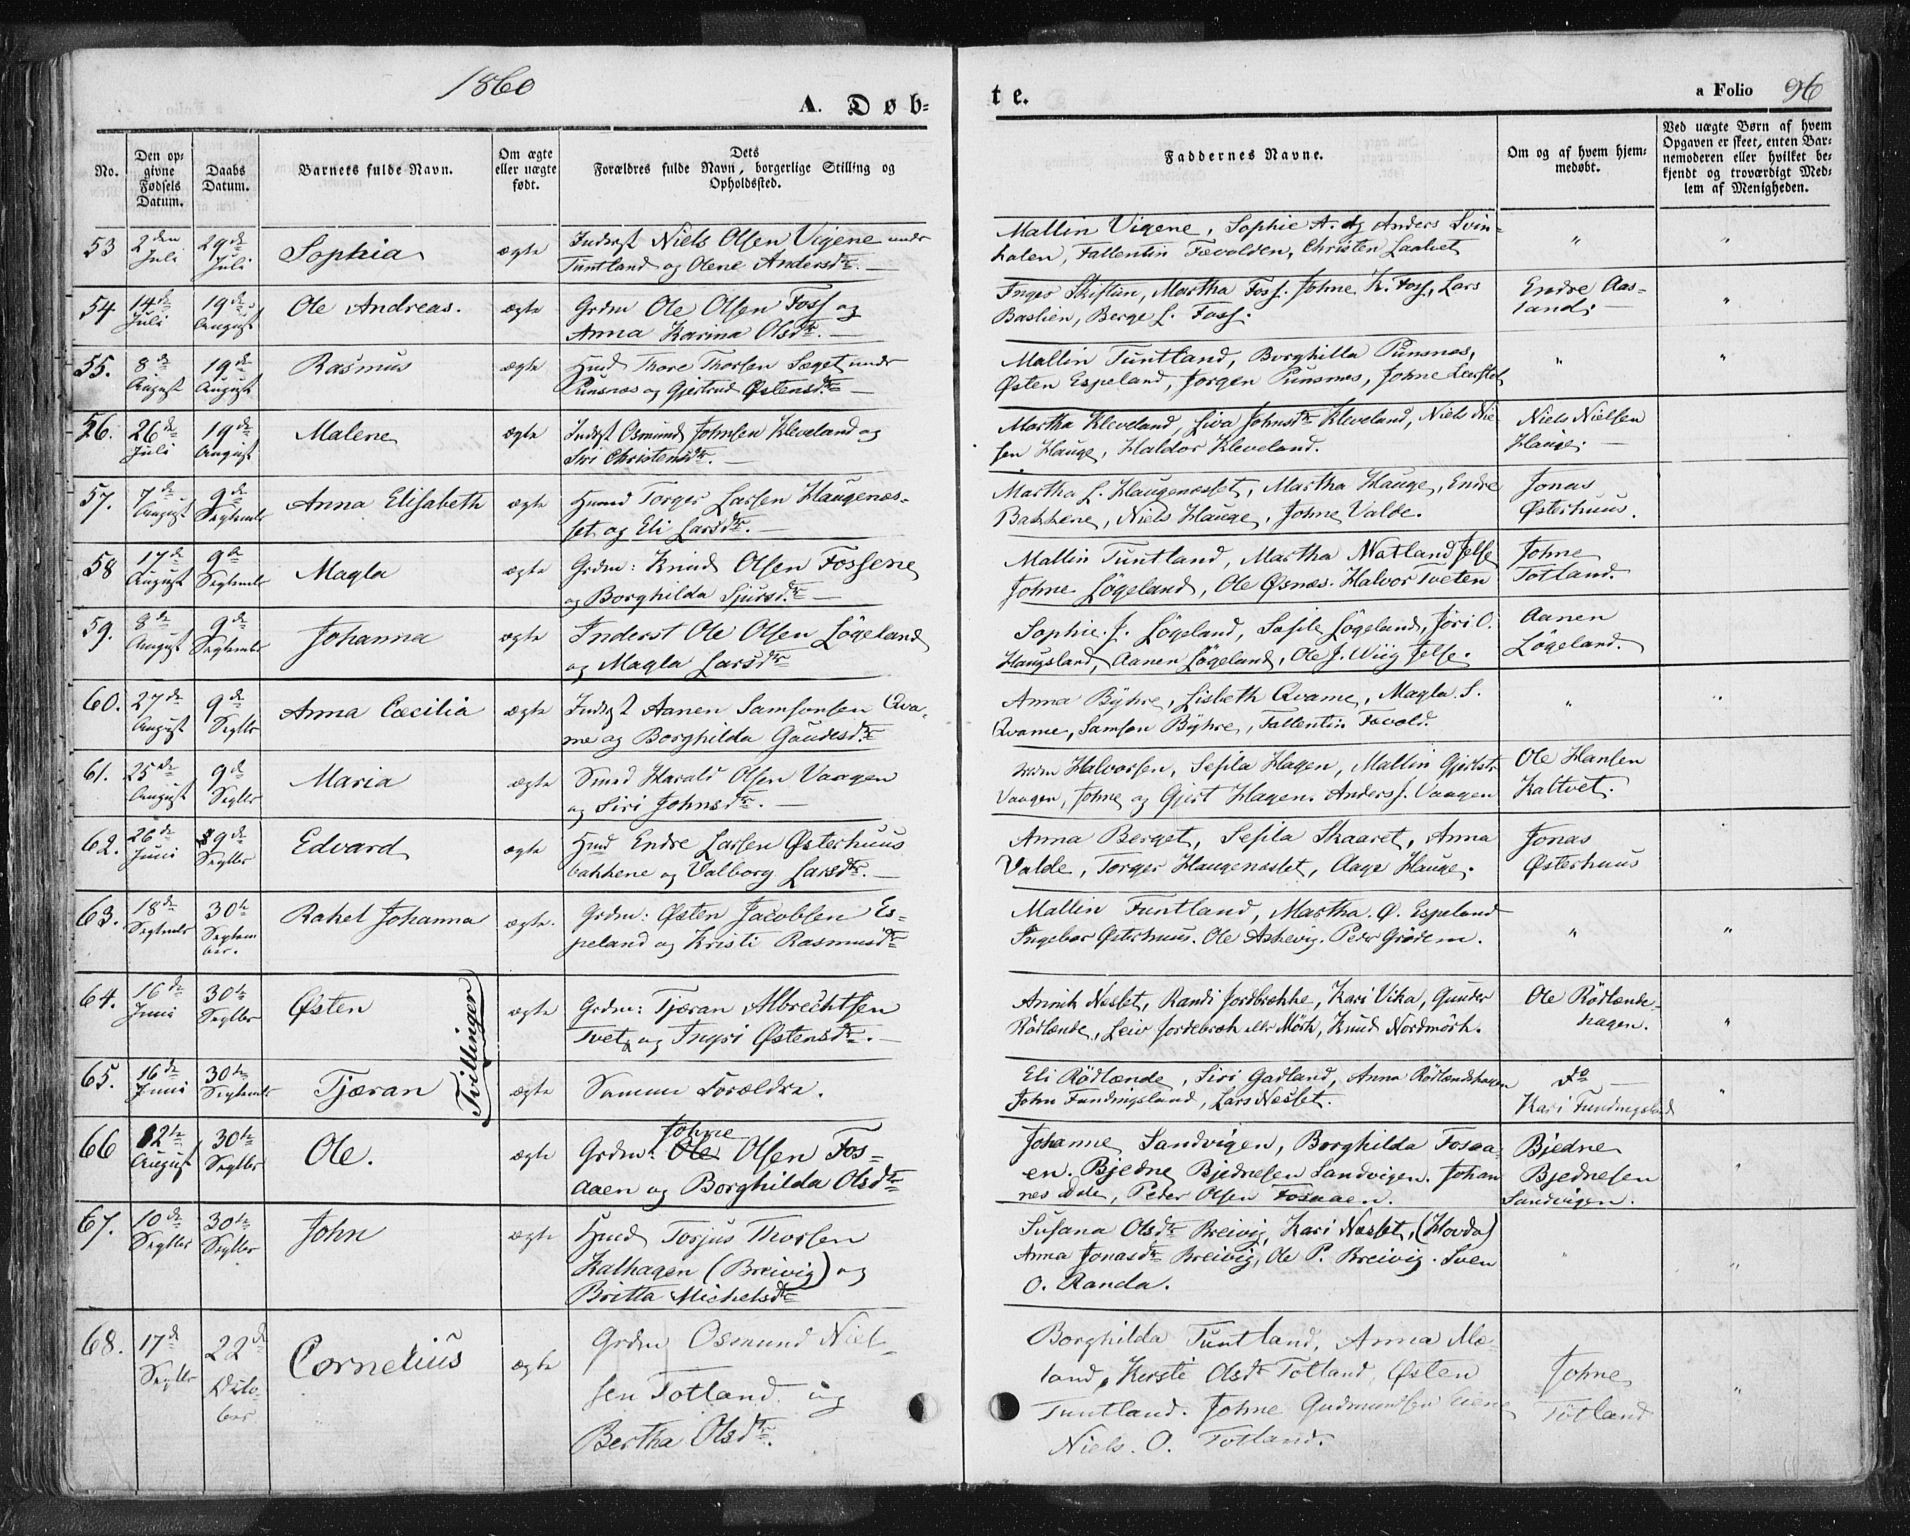 1860
A. Døb=
te.
a Folio 96
No.
Den op=
givne
Fødsels
Datum.
Daabs
Datum.
Barnets fulde Navn.
Om ægte
eller uægte
født.
Dets
Forældres fulde Navn, borgerlige Stilling og
Opholdssted.
Faddernes Navne.
Om og af hvem hjem=
medøbt.
Ved uægte Børn af hvem
Opgaven er skeet, enten Bar=
nemoderen eller hvilket be=
kjendt og troværdigt Med=
lem af Menigheden.
53 2den Juli 29de Juli Sophia ægte Inderst Niels Olsen Vigene under
Tuntland og Olene Andersdtr. —
Mallin Vigene, Sophie A. og Anders Svin-
halen, Fallentin Fævolden, Christen Laalvet " "
54 14de Juli 19de August Ole Andreas. ægte Grdm Ole Olsen Foss og
Anna Karina Olsdtr. —
Inger Skiftun, Martha Foss. Johne K. Foss, Lars
Bastien, Berge L. Foss.
Endre Aas-
land. — "
55. 8de August 19de August Rasmus ægte Husd Thore Thorsen Sæget under
Punsnæs og Gjertrud Østensdtr. —
Mallin Tuntland, Borghilla Punsnæs,
Østen Espeland, Jørgen Punsnæs, Johne " "
56. 26de Juli 19de August Malene ægte Inderst Osmund Johnsen Kleveland og
Siri Christensdtr. —
Martha Kleveland, Siva Johnsdtr Kleveland, Niels Niel-
sen Hauge, Haldor Kleveland.
Niels Nielsen
Hauge. —
57. 7de August 9de Septembr Anna Elisabeth ægte Husmd Torger Larsen Haugenæs-
set og Eli Larsdtr. —
Martha L. Haugenæsset, Martha Hauge, Endre
Bakkene, Niels Hauge, Johne Valde.
Jonas
Østerhuus.
58 17de August 9de Septembr Magla ægte Grdm: Knud Olsen Fossene
og Borghilda Sjursdtr. —
Mallin Tuntland, Martha Natland Jelse
Johne Løgeland, Ole Øsnæs. Halvor Tveten
Johne
Totland.
59. 8de August 9de Septembr Johanna ægte Inderst Ole Olsen Løgeland
og Magla Larsdtr
Sophie. J. Løgeland, Sesile Løgeland, Jøri O.
Haugsland, Aanen Løgeland, Ole J. Wiig Jelse.
Aanen
Løgeland.
60. 27de August 9de Septbr Anna Cæcilia ægte Inderst Aanen Samsonsen Qva-
me og Borghilda Gaudesdtr
Anna Bÿhre, Lisbeth Qvame, Magla S.
Qvame, Samson Bÿhre, Fallentin Fævold. " "
61. 25de August 9de Septbr Maria ægte Smed Harald Olsen Vaagen
og Siri Johnsdtr. —
Halvorsen, Sesila Hagen, Mallin Gjertsdtr
Vaagen, Johne og Gjert Hagen. Anders J. Vaagen
Ole Hansen
Kaltvet.
62. 26de Juni 9de Septbr Edvard ægte Husd Endre Larsen Østerhuus
bakkene og Valborg Larsdtr. —
Anna Berget, Sesila Skaaret, Anna
Valde, Torger Haugenæsset, Aage Hauge.
Jonas
Østerhuus
63. 18de Septembr 30te Septem
ber. Rakel Johanna ægte. Grdm: Østen Jacobsen Es-
peland og Kristi Rasmusdtr
Mallin Tuntland, Martha. Ø. Espeland
Ingebor Østerhuus. Ole Askevig. Peder Grødem. " "
64. 16de Juni 30te Septbr Østen Tvillinger ægte Grdm: Tjæran Albrechtsen
Tvet og Ingri Østensdtr. —
Annik Nesset, Randi Jordbrække, Kari Vika, Gunder
Rødlænde, Leiv Jordebræk eller Mørk, Knud Nordmørk.
Ole Rødlænde-
hagen. "
65. 16de Juni 30te Septembr Tjæran ægte Samme Forældre.
Eli Rødlænde, Siri Gadland, Anna Rødlændshagen
John Fundingsland, Lars Nesset.
Do —
Kari Fundingsland "
66 12te August 30te Septbr Ole. ægte Grdm: Johne Olsen Fos-
aaen og Borghilda Olsdtr
Johanne Sandvigen, Borghilda Fosaa-
en. Bjedne Bjednesen Sandvigen. Johan
nes Dale, Peder Olsen Fosaaen.
Bjedne
Bjednesen
Sandvigen. "
67. 10de Septbr 30te Septbr John ægte Husd Torjus Thorsen
Kalhagen (Breivig) og
Britta Michelsdtr
Susana Olsdtr Breivig, Kari Nesset, (Hovda)
Anna Jonasdtr Breivig, Ole P. Breivig. Sven
O. Randa. " "
68. 17de Septbr 22de Octo-
ber Cornelius ægte Grdm Osmund Niel-
sen Totland og
Bertha Olsdtr.
Borghilda Tuntland, Anna Mæ-
land, Kersti Olsdtr Totland, Østen
Tuntland. Johne Gudmundsen Eiene
Niels. O. Totland.
Johne
Totland "